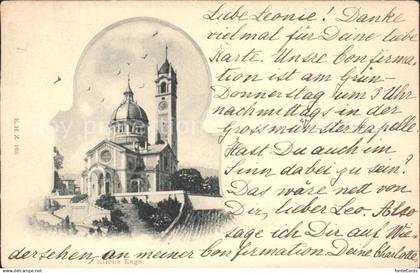 Liebe Leonie! Danke
vielmal für Deine liebe
Karte. Unsre Confirma-
tion ist am Grün-
Donnerstag um 3 Uhr
nachmittags in der
Grossmünsterkapelle
Hast Du auch im
Sinn dabei zu sein?
Das wäre nett von
Dir, lieber Leo. Also
sage ich Dir auf Wie-
dersehen, an meiner Confirmation. Deine Charlotte
Kirche Enge
E. H. Z. 165